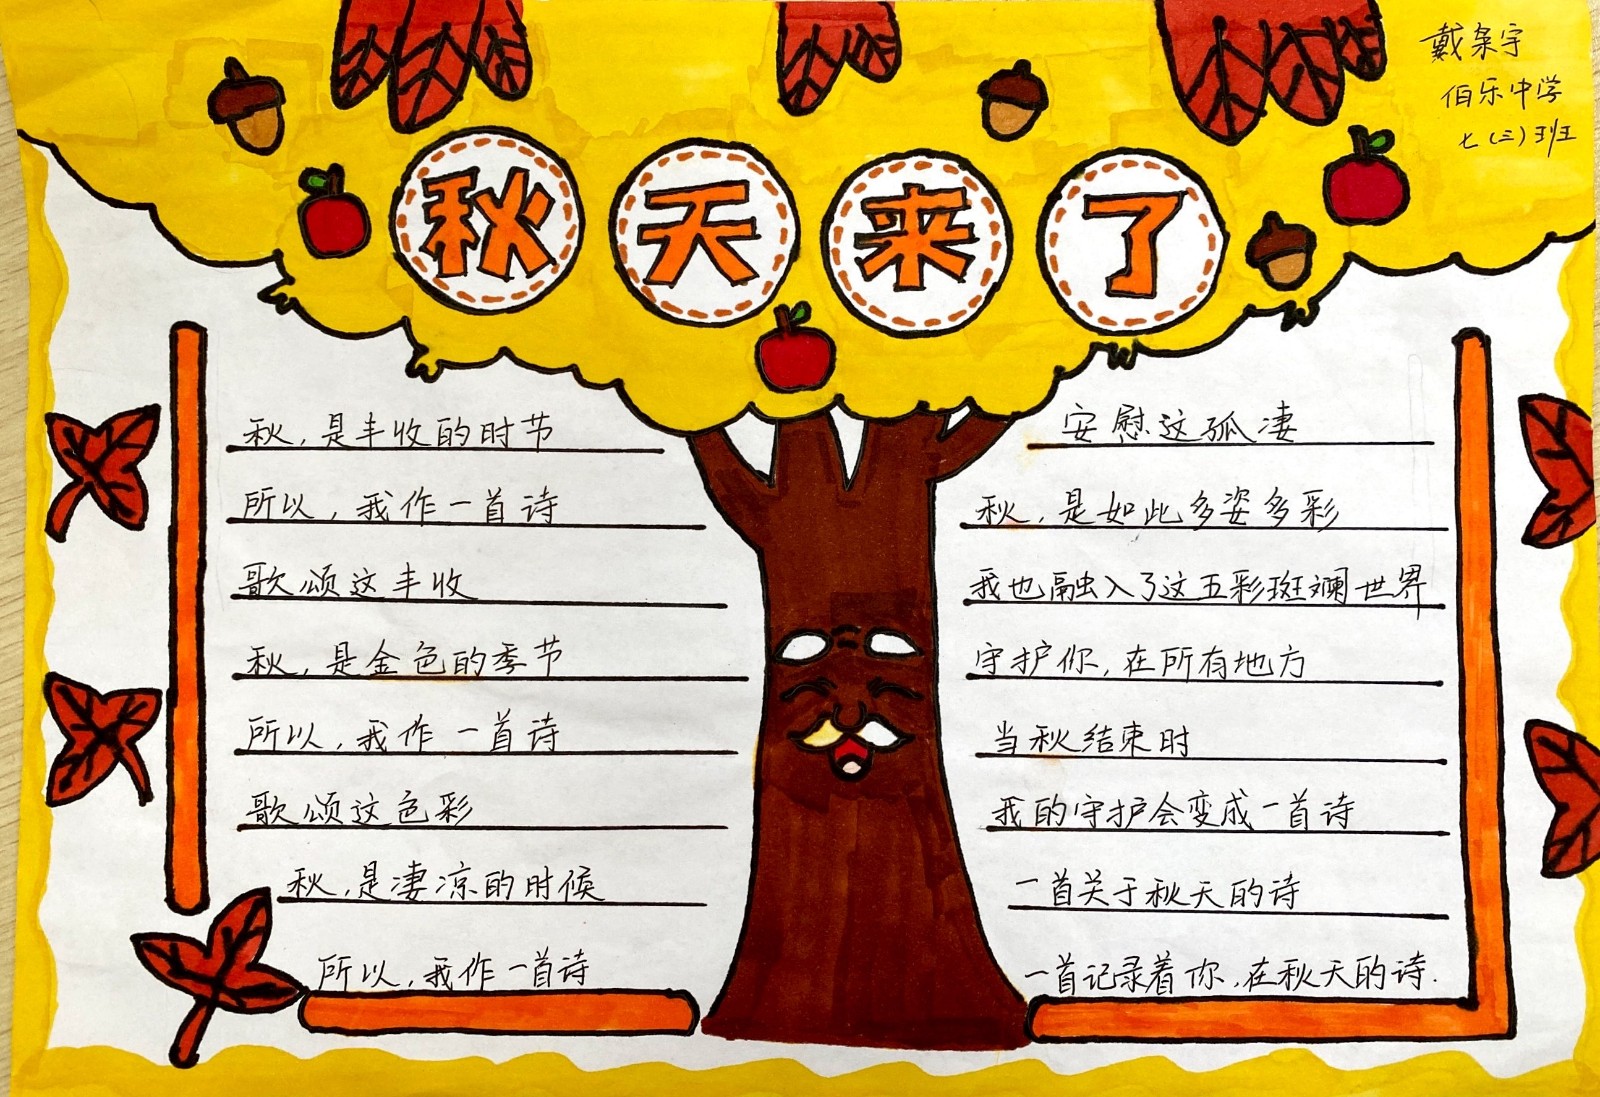 戴枭宇
伯乐中学
七(三)班
秋天来了
秋,是丰收的时节
所以,我作一首诗
歌颂这丰收
秋,是金色的季节
所以,我作一首诗
歌颂这色彩
秋,是凄凉的时候
所以,我作一首诗
安慰这孤凄
秋,是如此多姿多彩
我也融入了这五彩斑斓世界
守护你,在所有地方
当秋结束时
我的守护会变成一首诗
一首关于秋天的诗
一首记录着你,在秋天的诗.